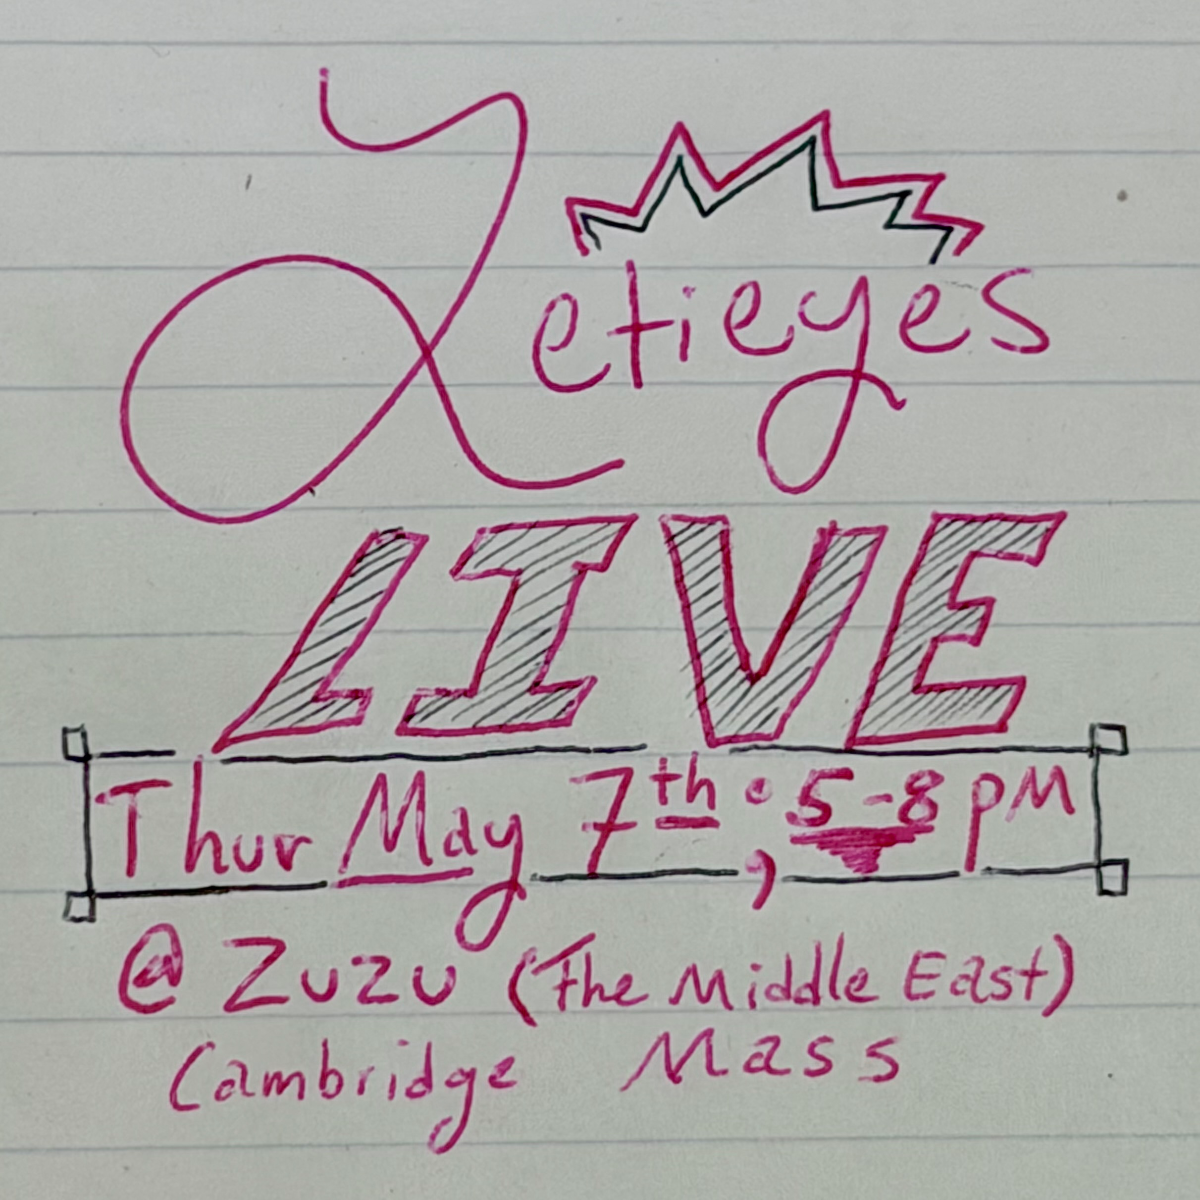 Letieyes
LIVE
Thur May 7th, 5-8 pM
@ Zuzu (The Middle East)
Cambridge Mass